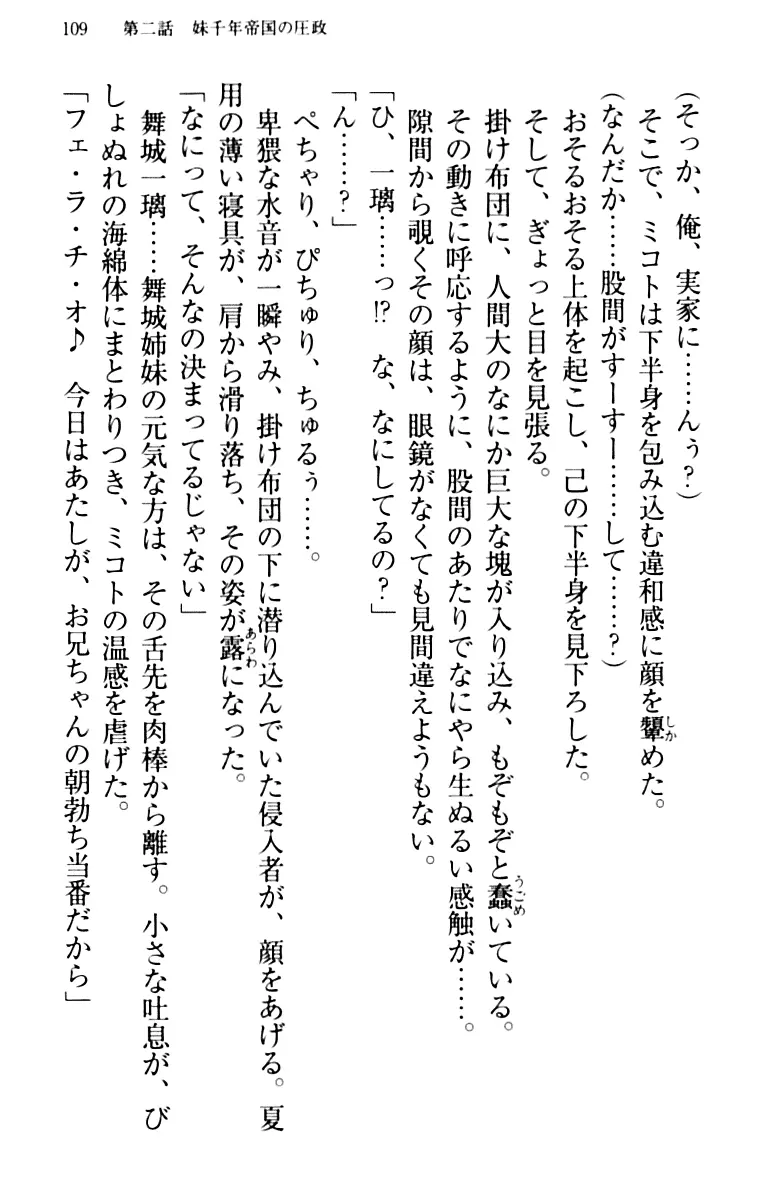 109 第二話 妹千年帝国の圧政
(そっか、俺、実家に……んぅ?)
そこで、ミコトは下半身を包み込む違和感に顔を顰めた。
(なんだか……股間がすーすー……して……?)
おそるおそる上体を起こし、己の下半身を見下ろした。
そして、ぎょっと目を見張る。
掛け布団に、人間大のなにか巨大な塊が入り込み、もぞもぞと蠢いている。
その動きに呼応するように、股間のあたりでなにやら生ぬるい感触が……。
隙間から覗くその顔は、眼鏡がなくても見間違えようもない。
「ひ、一璃……っ!? な、なにしてるの?」
「ん……?」
ぺちゃり、ぴちゅり、ちゅるぅ……。
卑猥な水音が一瞬やみ、掛け布団の下に潜り込んでいた侵入者が、顔をあげる。夏
用の薄い寝具が、肩から滑り落ち、その姿が露になった。
「なにって、そんなの決まってるじゃない」
舞城一璃……舞城姉妹の元気な方は、その舌先を肉棒から離す。小さな吐息が、び
しょぬれの海綿体にまとわりつき、ミコトの温感を虐げた。
「フェ・ラ・チ・オ♪ 今日はあたしが、お兄ちゃんの朝勃ち当番だから」